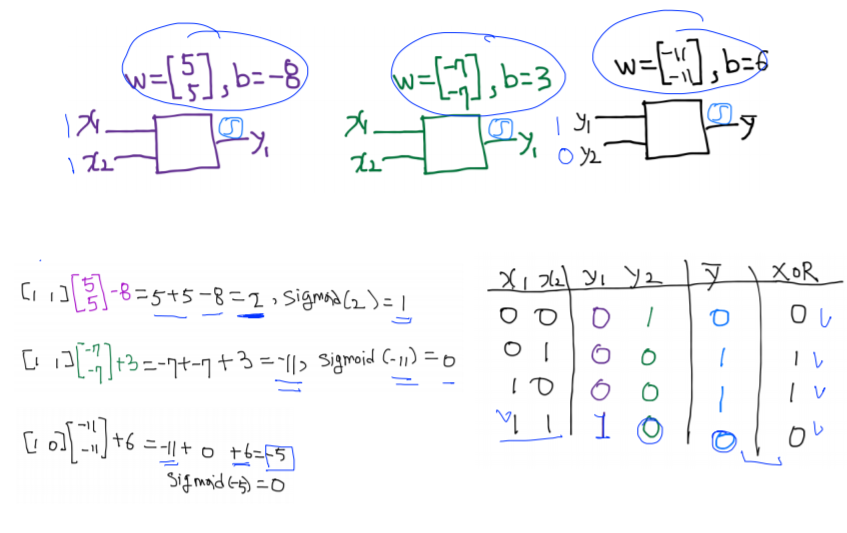 w=[5 5], b=-8
w=[-7 -7], b=3
w=[-11 -11], b=6
1 x1
1 x2
S
y1
x1
x2
S
y1
1 y1
0 y2
S
ȳ
[1 1][5 5]-8=5+5-8=2, sigmoid(2)=1
[1 1][-7 -7]+3=-7+-7+3=-11, sigmoid(-11)=0
[1 0][-11 -11]+6=-11+0+6=-5
sigmoid(-5)=0
x1 x2 y1 y2 ȳ XOR
0 0 0 1 0 0
0 1 0 0 1 1
1 0 0 0 1 1
1 1 1 0 0 0